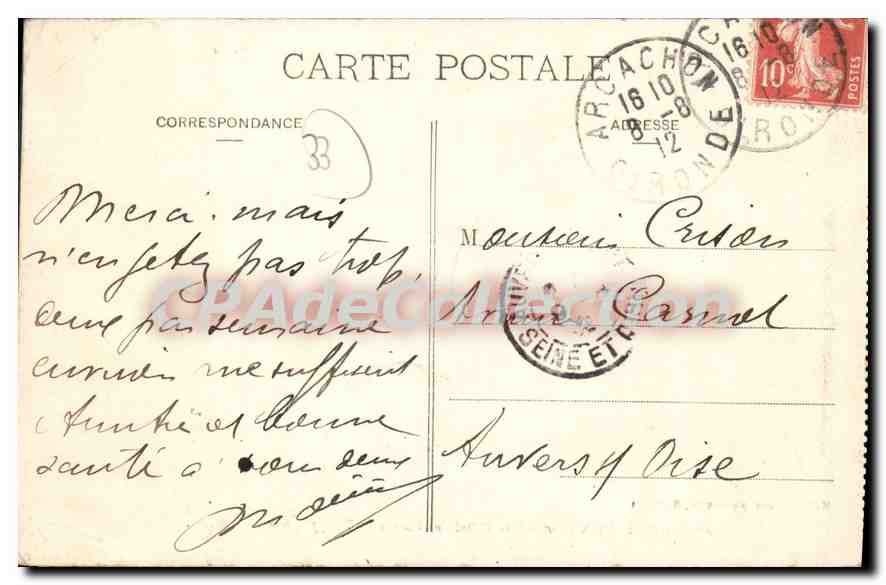 CARTE POSTALE
CORRESPONDANCE
ADRESSE
ARCACHON
16 10
8 - 8
12
GIRONDE
16 10
8
10c
POSTES
33
Merci. mais
n'en jetez pas trop,
deux par semaine
environ me suffisent
Amitié et bonne
santé à vous deux
Monsieur Crison
Carnot
Auvers s/ Oise
SEINE ET O
CPAdeCollection